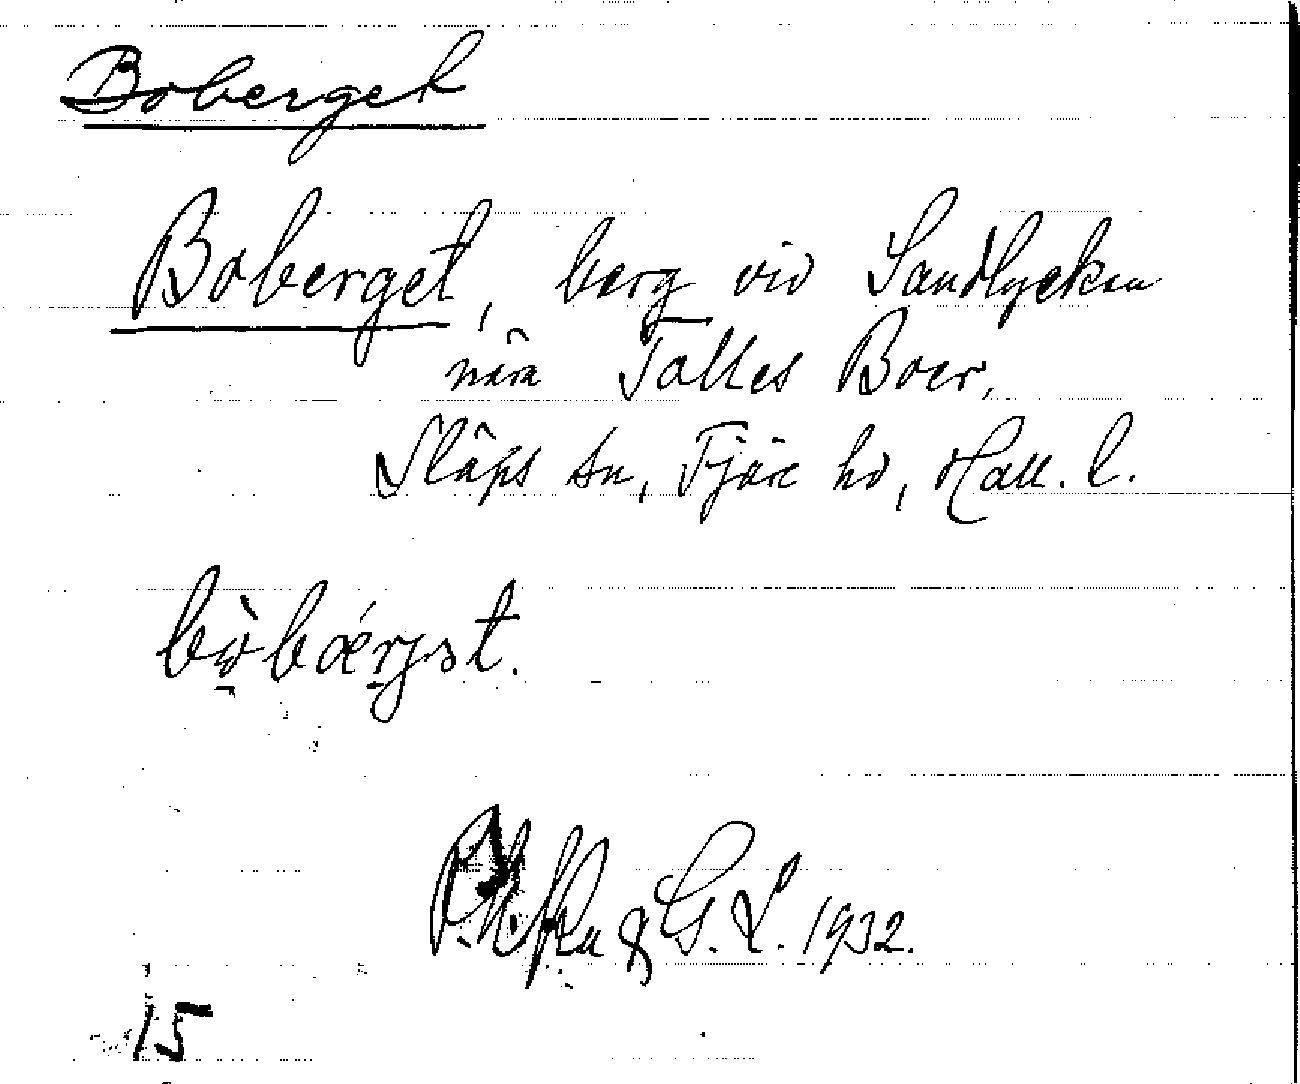 Boberget
Boberget, berg vid Sandlyckan
nära Tolles Boer,
Släps sn, Fjäre hd, Hall. l.
bo̱̍bærjət.
& G. L. 1932.
15